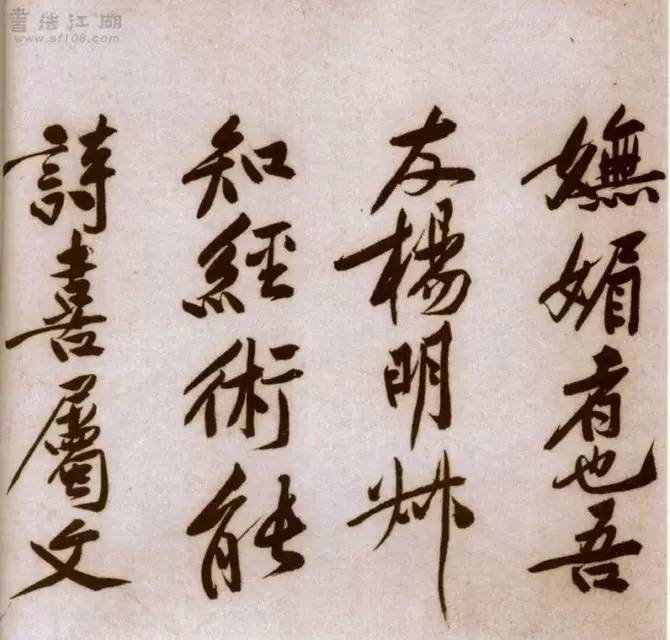 書法江湖
www.sf108.com
嫵媚者也吾
友楊明叔
知經術能
詩喜屬文